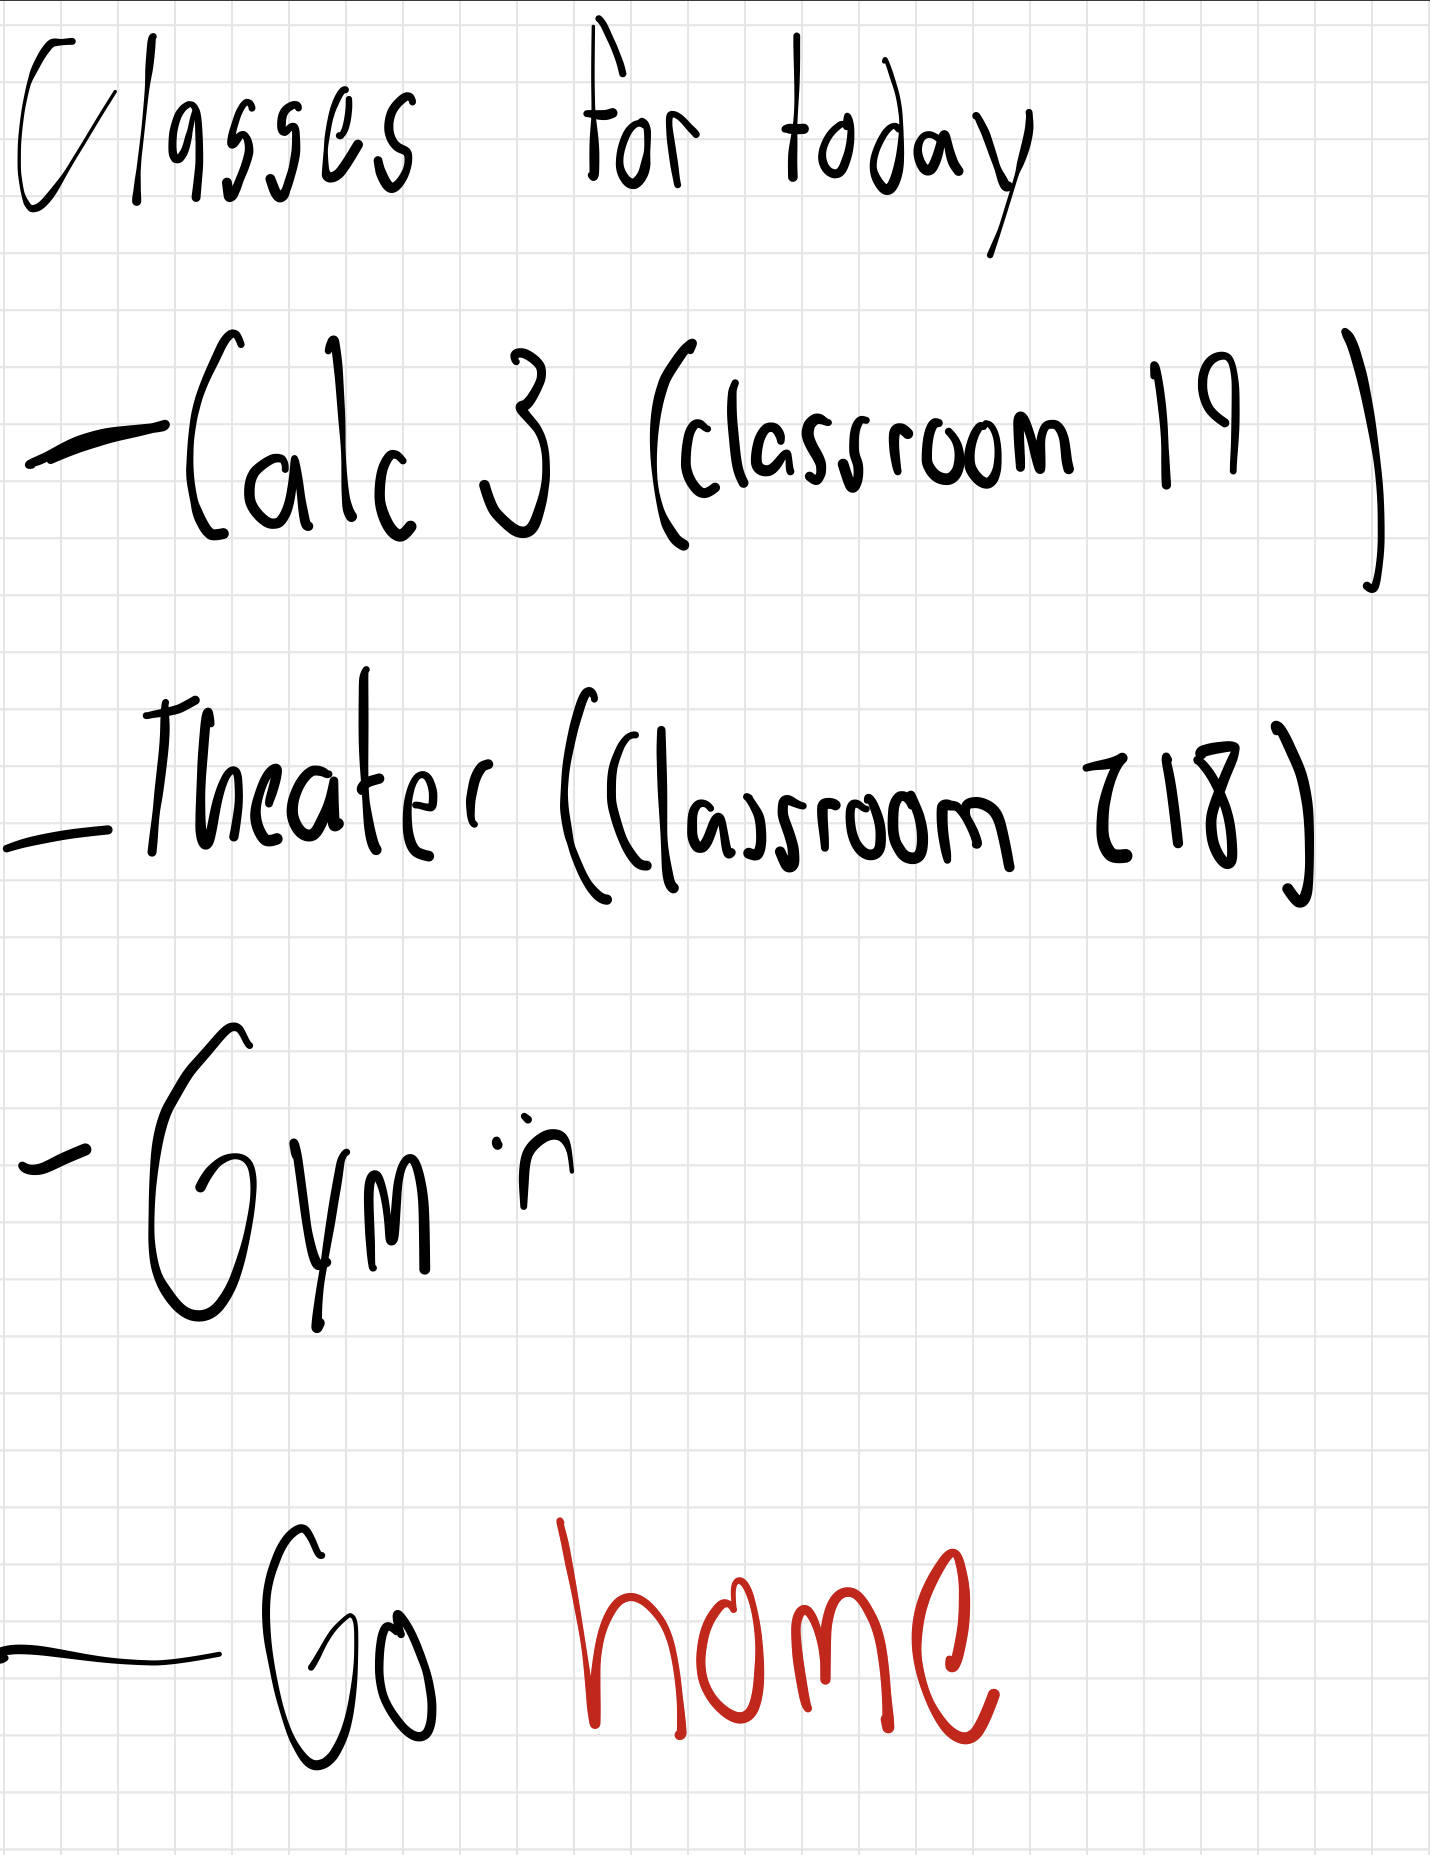 Classes for today
- Calc 3 (classroom 19)
- Theater (Classroom 218)
- Gym :∩
- Go home